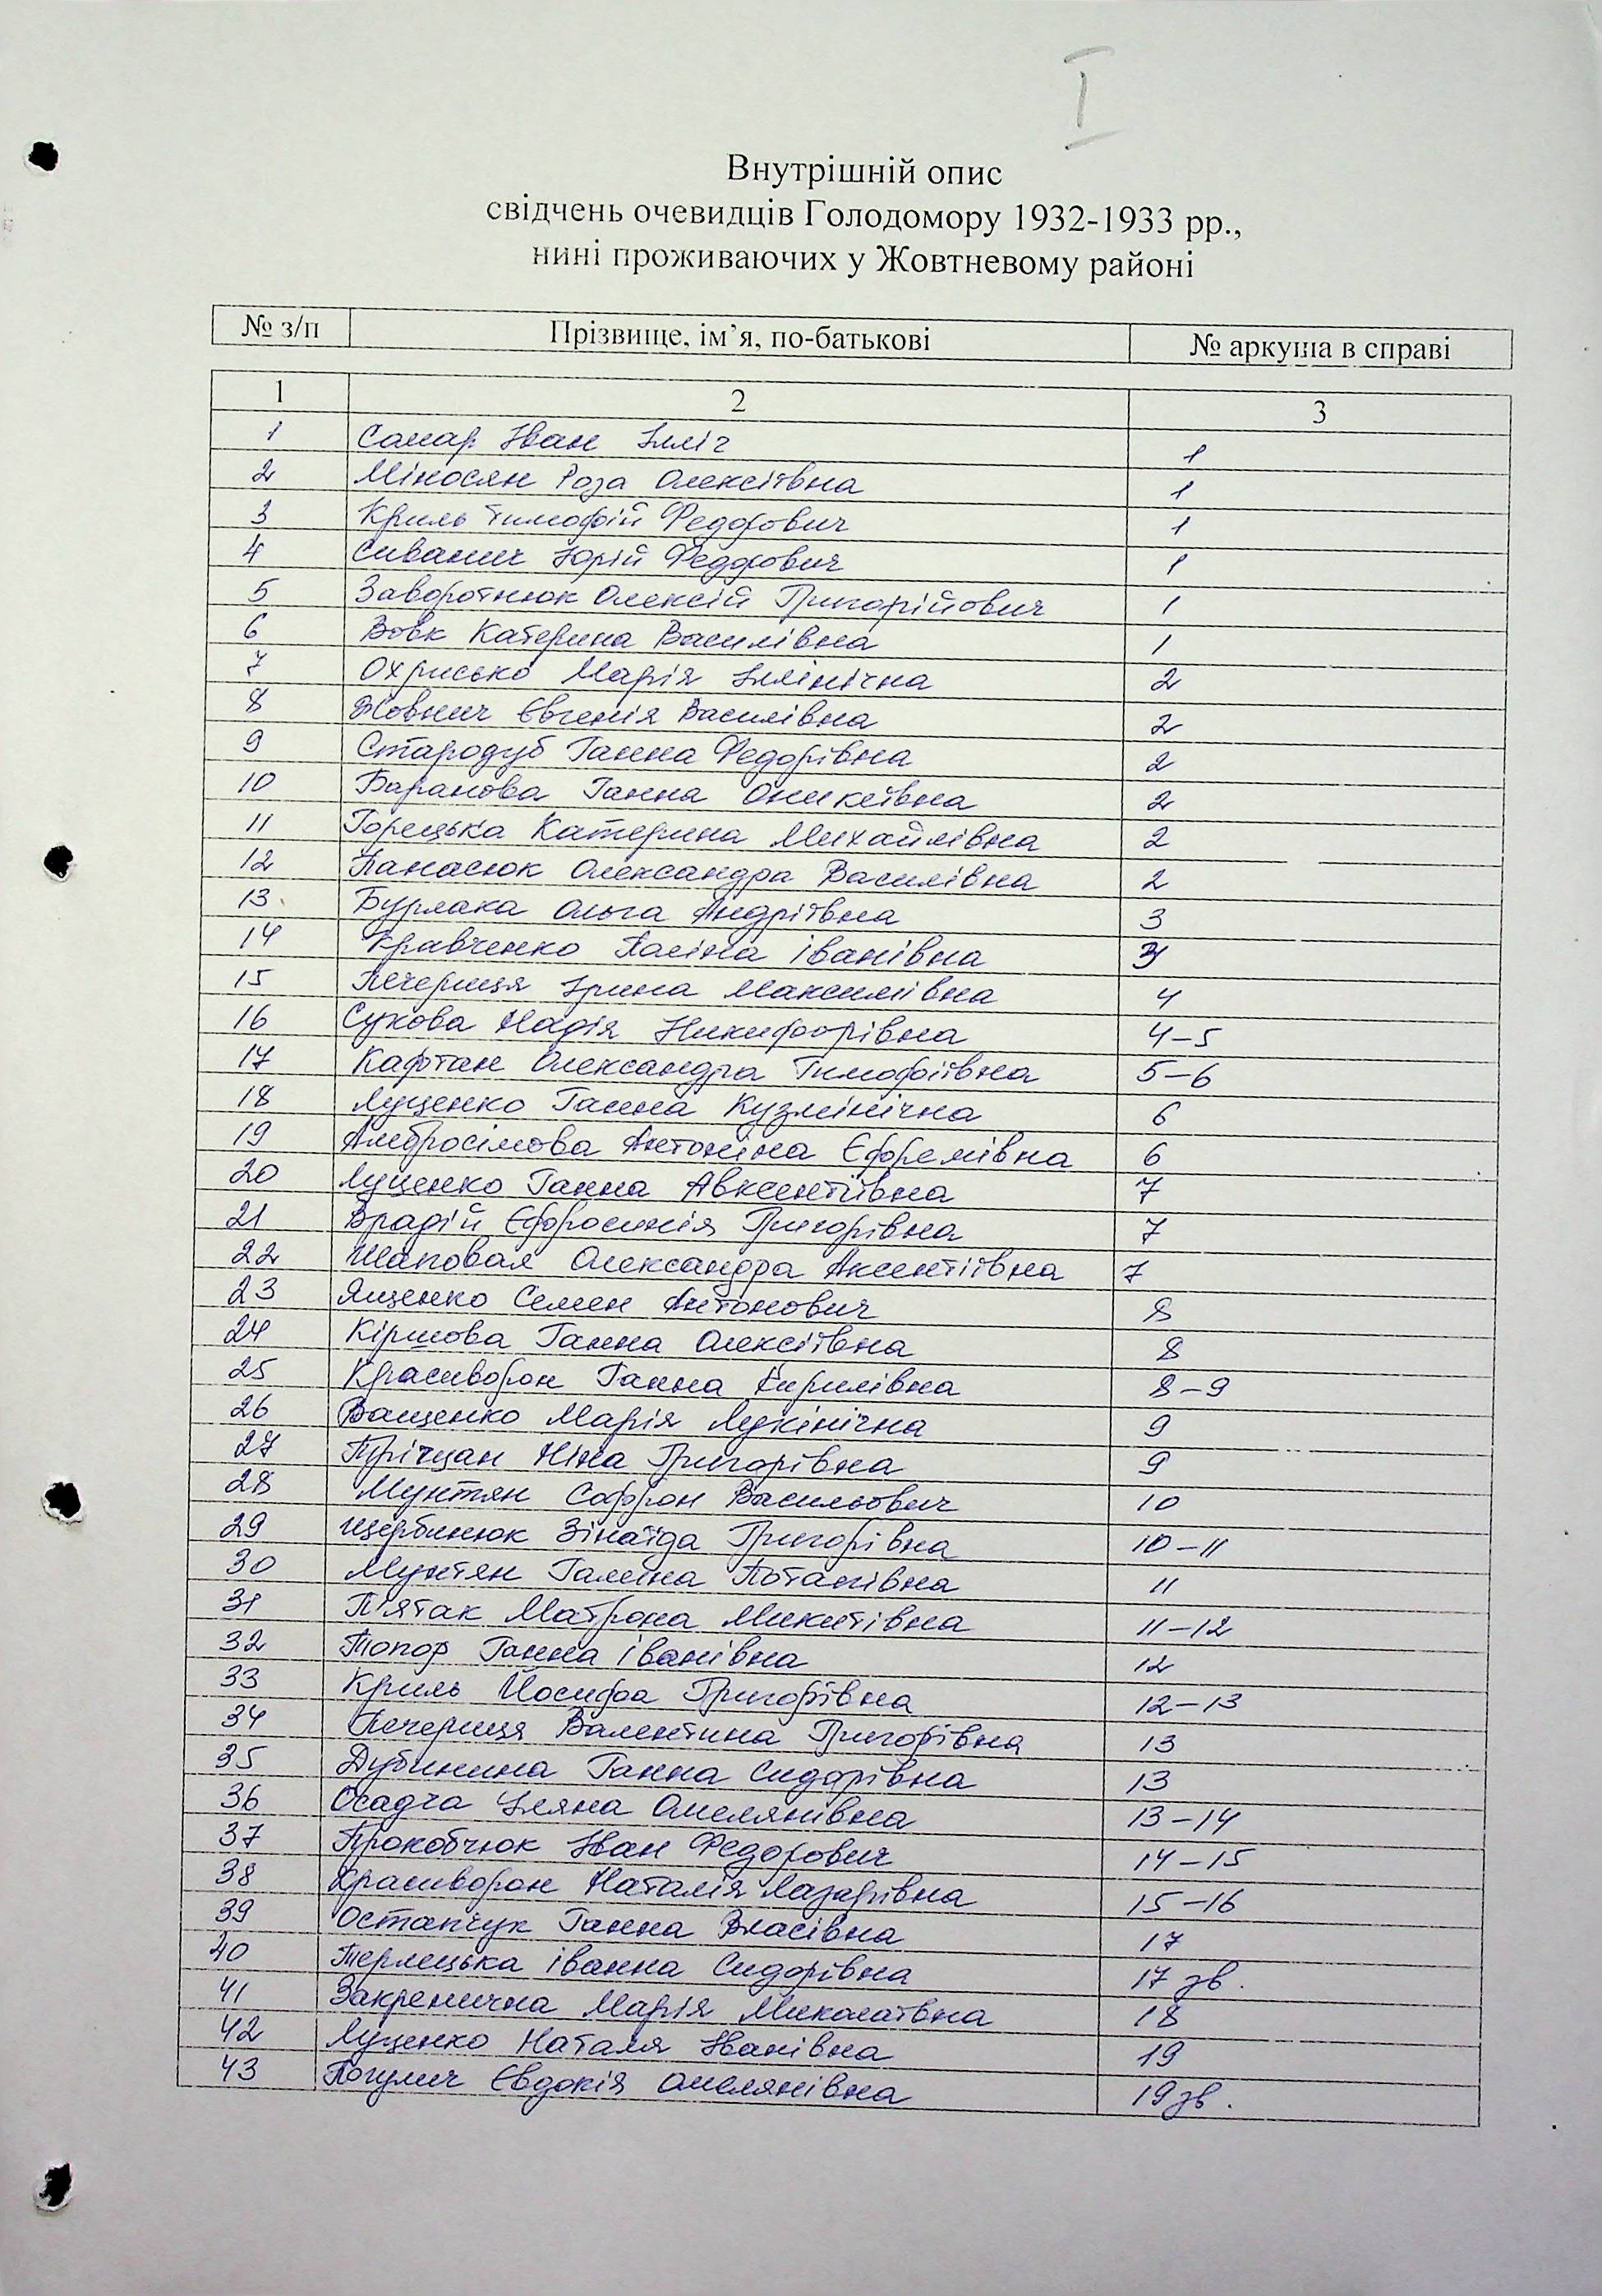 I
Внутрішній опис
свідчень очевидців Голодомору 1932-1933 рр.,
нині проживаючих у Жовтневому районі
№ з/п Прізвище, ім’я, по-батькові № аркуша в справі
1 2 3
1 Самар Іван Ілліч 1
2 Міносян Роза Олексіївна 1
3 Криль Тимофій Федорович 1
4 Сиванич Юрій Федорович 1
5 Заворотнюк Олексій Григорійович 1
6 Вовк Катерина Василівна 1
7 Охрисько Марія Іллінічна 2
8 Жовнич Євгенія Василівна 2
9 Стародуб Ганна Федорівна 2
10 Баранова Ганна Оникеївна 2
11 Горецька Катерина Михайлівна 2
12 Панасюк Олександра Василівна 2
13 Бурлака Ольга Андріївна 3
14 Кравченко Галіна Іванівна 3
15 Печериця Ірина Максимівна 4
16 Сукова Надія Никифорівна 4-5
17 Кафтан Олександра Тимофіївна 5-6
18 Луценко Ганна Кузмінічна 6
19 Амбросімова Антоніна Єфремівна 6
20 Луценко Ганна Авксентіївна 7
21 Врадій Єфросинія Григорівна 7
22 Шаповал Олександра Аксентіївна 7
23 Ященко Семен Антонович 8
24 Кіршова Ганна Олексіївна 8
25 Красиворон Ганна Кирилівна 8-9
26 Ващенко Марія Лукінічна 9
27 Прічцан Ніна Григорівна 9
28 Мунтян Софрон Васильович 10
29 Щербинюк Зінаїда Григорівна 10-11
30 Мунтян Галина Потапівна 11
31 П'ятак Матрона Микитівна 11-12
32 Топор Ганна Іванівна 12
33 Криль Йосифа Григорівна 12-13
34 Печериця Валентина Григорівна 13
35 Дубинина Ганна Сидорівна 13
36 Осадча Уляна Омелянівна 13-14
37 Прокобчюк Іван Федорович 14-15
38 Красиворон Наталія Лазарівна 15-16
39 Остапчук Ганна Власівна 17
40 Терлецька Іванна Сидорівна 17 зв.
41 Закренична Марія Миколаївна 18
42 Луценко Наталя Іванівна 19
43 Погулич Євдокія Омелянівна 19 зв.